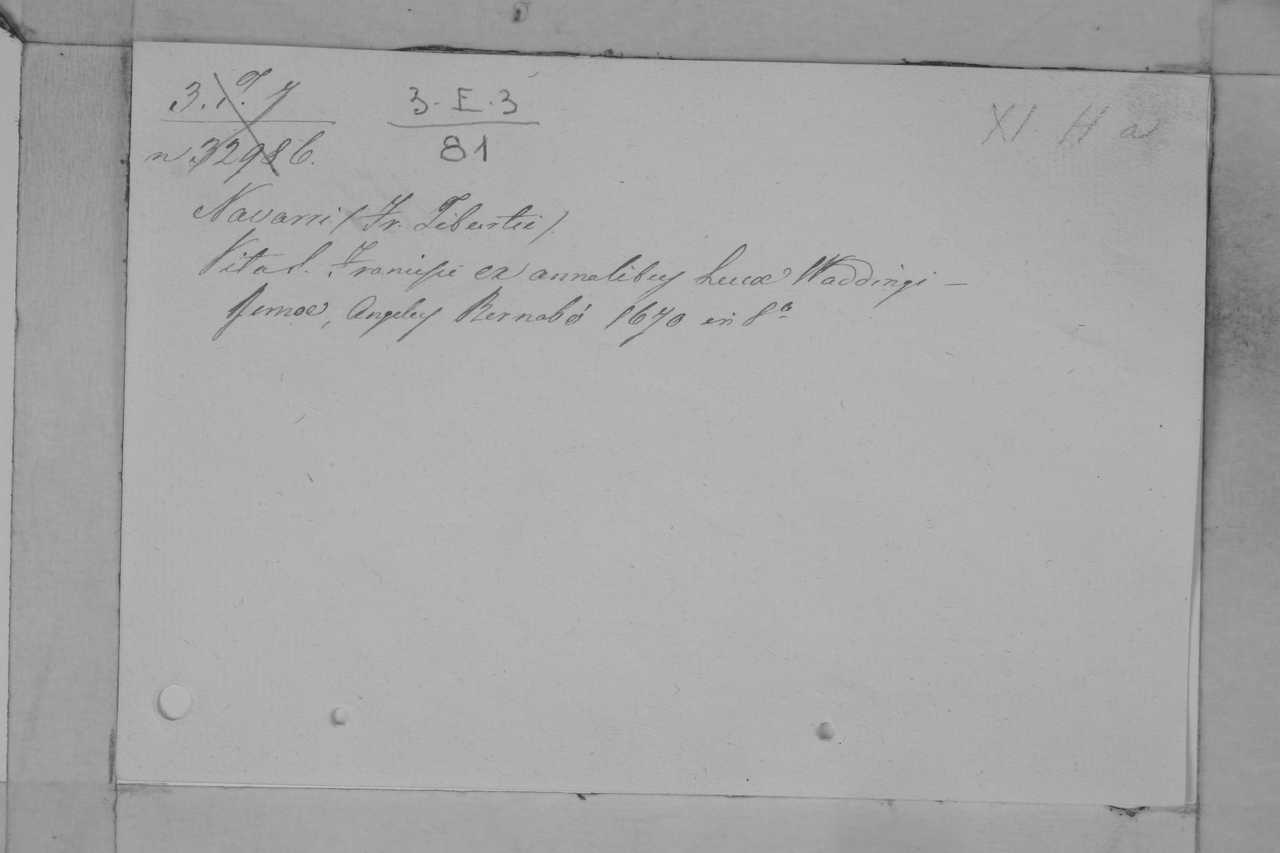 3. T. 7
n. 32986.
3. E. 3
81
XI H a
Navarri (Fr. Tiburtii).
Vita S. Francisci ex annalibus Lucæ Waddingi –
Romæ, Angelus Bernabò 1670 in 8º